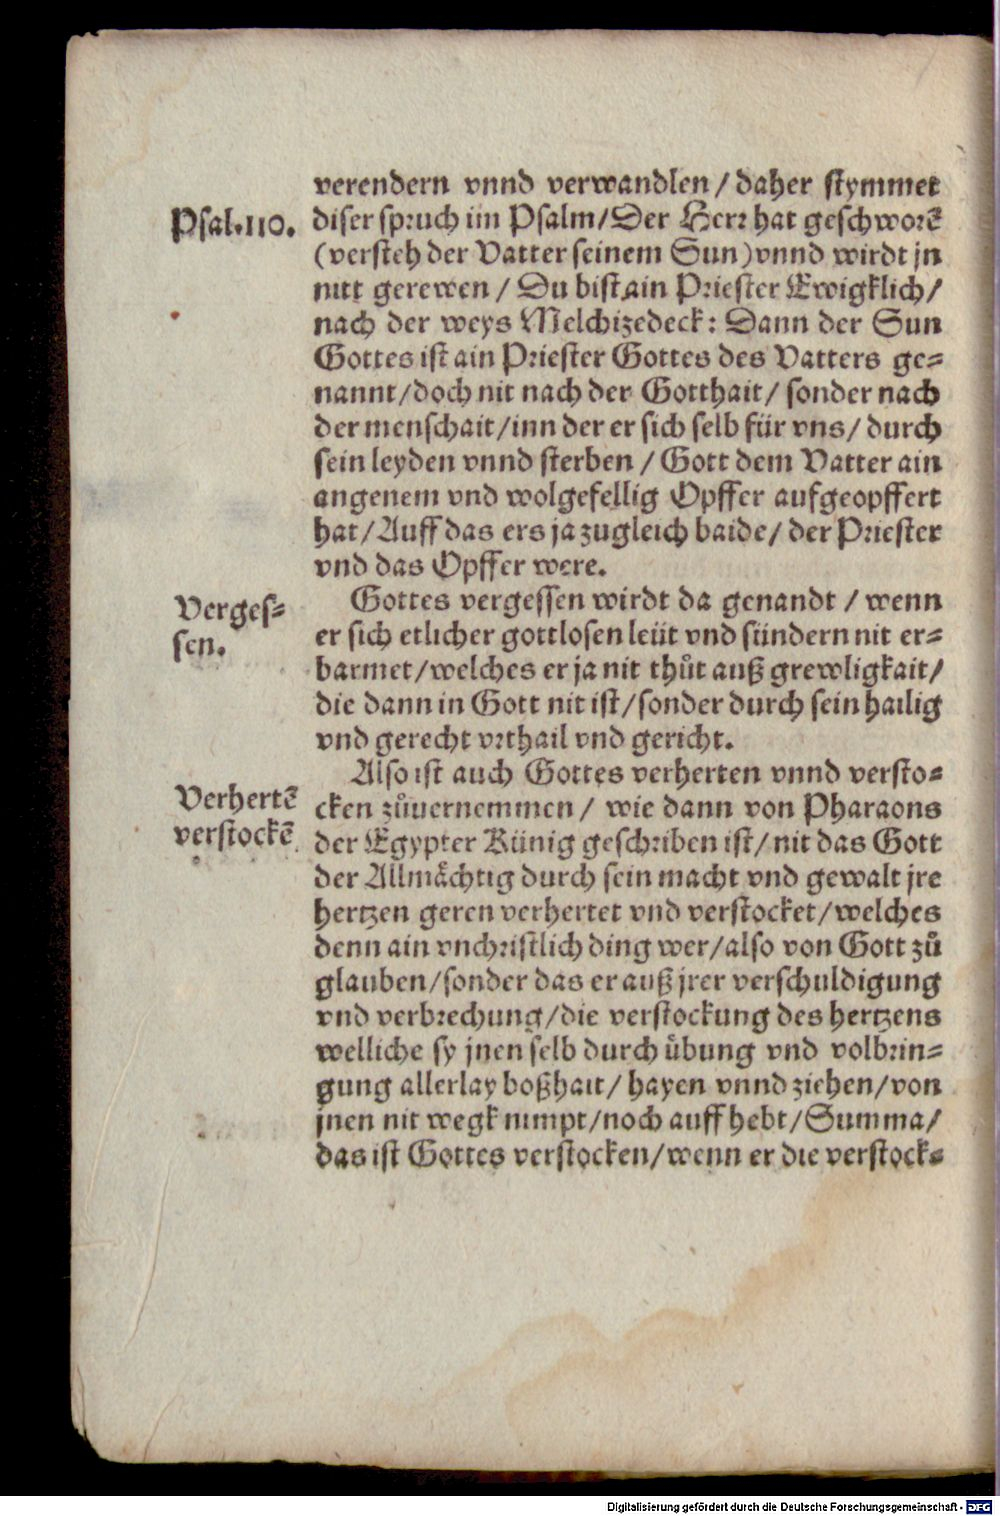 verendern vnnd verwandlen / daher stymmet
Psal.110.
diser spruch im Psalm/Der Herr hat geschworẽ
(versteh der Vatter seinem Sun) vnnd wirdt jn
nitt gerewen / Du bist ain Priester Ewigklich/
nach der weys Melchizedeck: Dann der Sun
Gottes ist ain Priester Gottes des Vatters ge-
nannt/doch nit nach der Gotthait/ sonder nach
der menschait/inn der er sich selb für vns/ durch
sein leyden vnnd sterben / Gott dem Vatter ain
angenem vnd wolgefellig Opffer aufgeopffert
hat/Auff das ers ja zugleich baide/ der Priester
vnd das Opffer were.
Verges-
sen.
Gottes vergessen wirdt da genandt / wenn
er sich etlicher gottlosen leüt vnd sündern nit er-
barmet/welches er ja nit thůt auß grewligkait/
die dann in Gott nit ist/sonder durch sein hailig
vnd gerecht vrthail vnd gericht.
Verhertẽ
verstockẽ
Also ist auch Gottes verherten vnnd versto-
cken zůuernemmen / wie dann von Pharaons
der Egypter Künig geschriben ist/ nit das Gott
der Allmächtig durch sein macht vnd gewalt jre
hertzen geren verhertet vnd verstocket/welches
denn ain vnchristlich ding wer/also von Gott zů
glauben/sonder das er auß jrer verschuldigung
vnd verbrechung/die verstockung des hertzens
welliche sy jnen selb durch übung vnd volbrin-
gung allerlay boßhait/ hayen vnnd ziehen/von
jnen nit wegk nimpt/noch auff hebt/Summa/
das ist Gottes verstocken/wenn er die verstock-
Digitalisierung gefördert durch die Deutsche Forschungsgemeinschaft - DFG